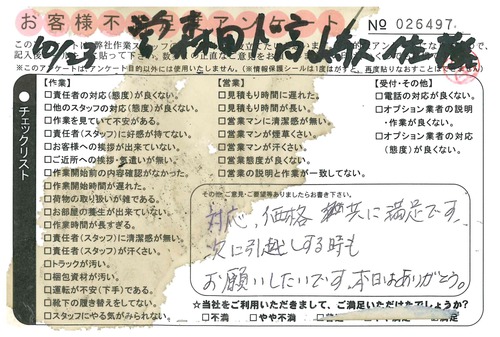 お客様不
アンケート
No 026497
10/3
営 森田
【作業】
責任者の対応(態度)が良くない。
他のスタッフの対応(態度)が良くない。
作業を見ていて不安がある。
責任者(スタッフ)に好感が持てない。
お客様への挨拶が出来ていない。
ご近所への挨拶・気遣いが無い。
作業開始前の内容確認がなかった。
作業開始時間が遅れた。
荷物の取り扱いが雑である。
お部屋の養生が出来ていない。
作業時間が長すぎる。
責任者(スタッフ)に清潔感が無い。
責任者(スタッフ)が汗くさい。
トラックが汚い。
梱包資材が汚い。
運転が不安(下手)である。
靴下の履き替えをしてない。
スタッフにやる気がみられない。
【営業】
見積もり時間に遅れた。
見積もり時間が長い。
営業マンに清潔感が無い。
営業マンが煙草くさい。
営業マンが汗くさい。
営業態度が良くない。
営業の説明と作業が一致してない。
【受付・その他】
電話の対応が良くない。
オプション業者の説明
・作業が良くない。
オプション業者の対応
(態度)が良くない。
チェックリスト
その他ご意見・ご要望等ありましたらお書き下さい。
対応、価格 共に満足です。
次に引越しする時も
お願いしたいです。本日はありがとう。
☆当社をご利用いただきまして、ご満足いただけたでしょうか?
不満 やや不満